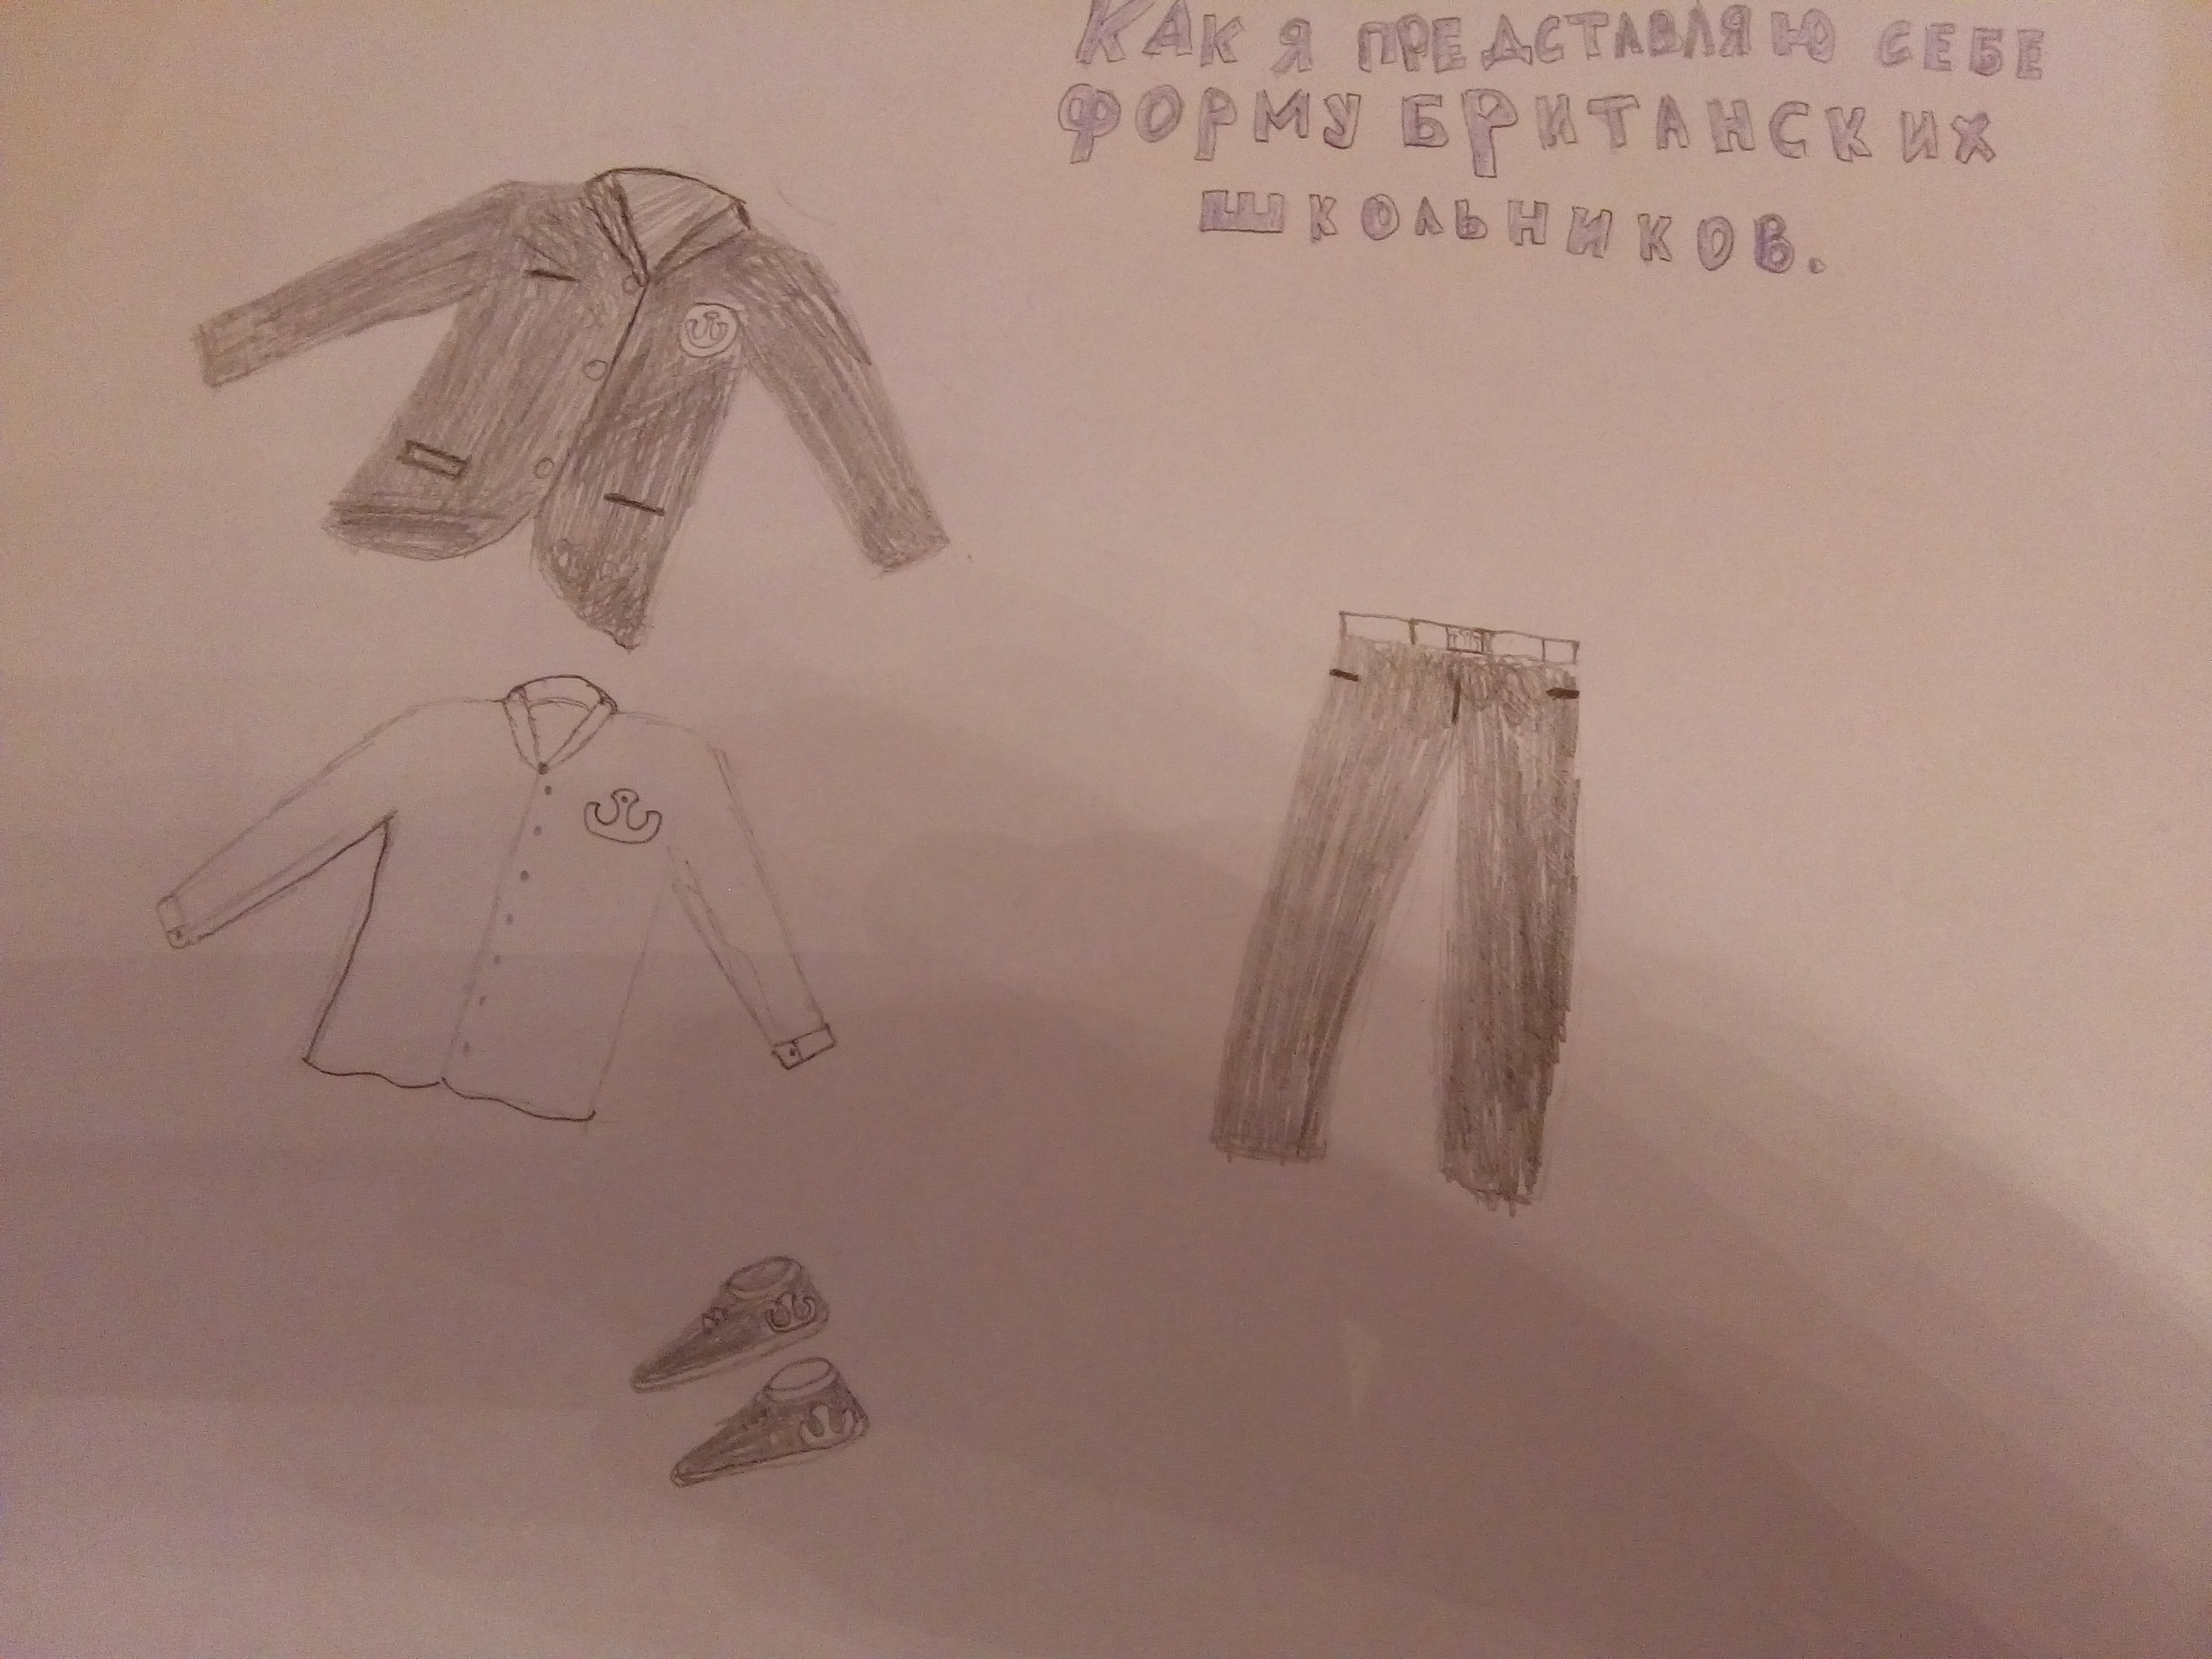 Как я представляю себе
форму британских
школьников.